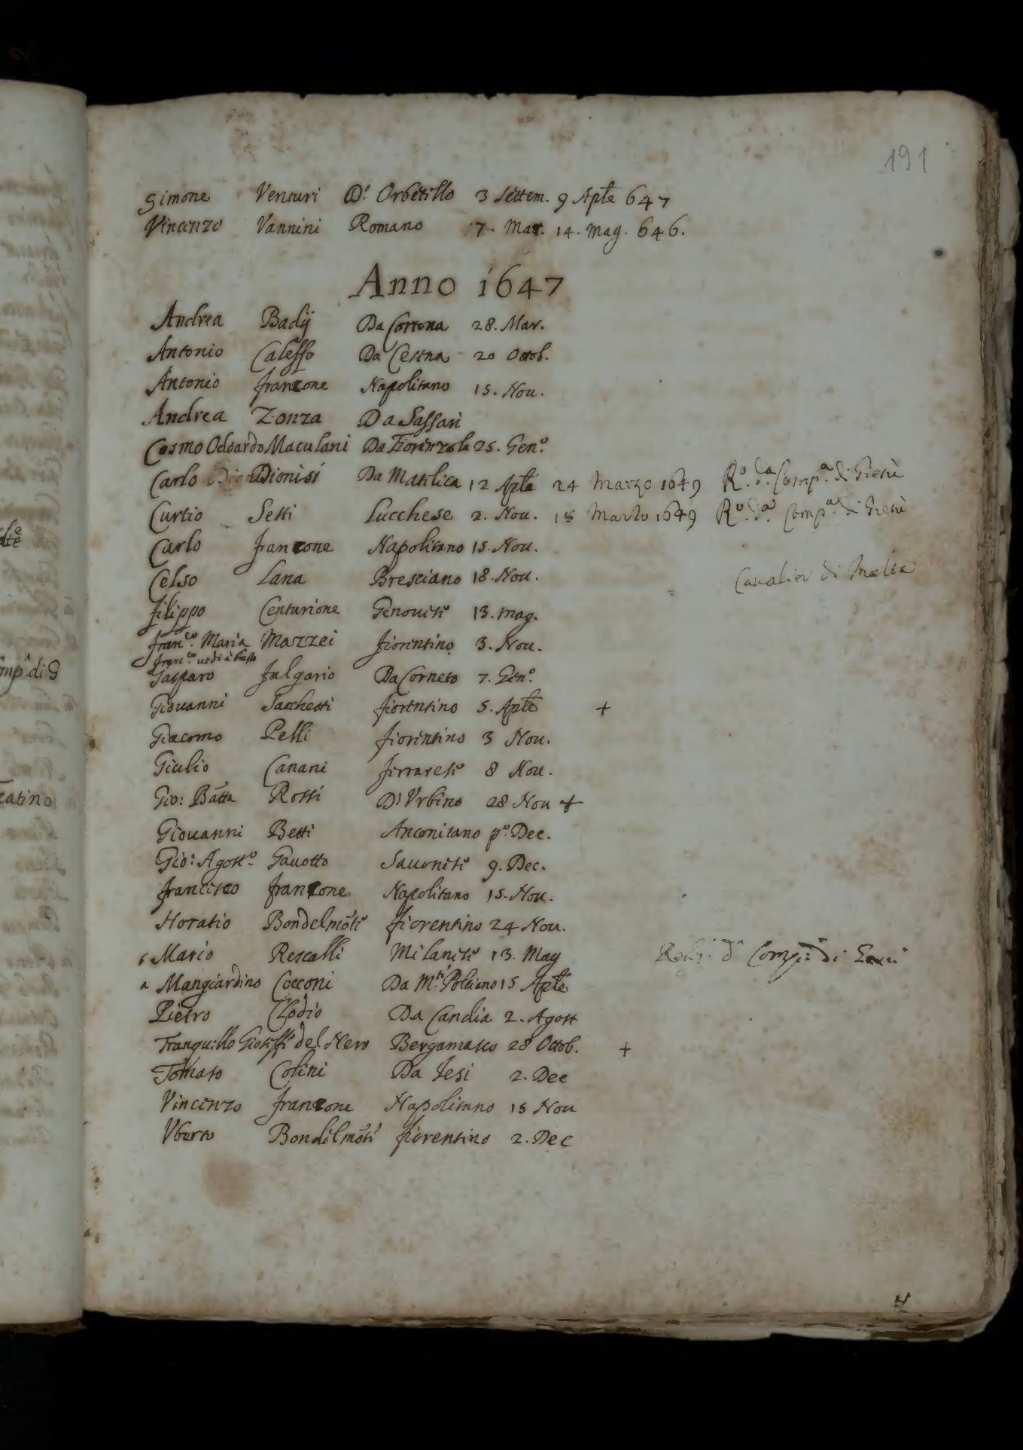 191
Simone Venturi D'Orbetello 3 Settem. 9 Aple 647
Vincenzo Vannini Romano 7. Mar. 14. Mag. 646.
Anno 1647
Andrea Badij Da Cortona 28. Mar.
Antonio Caleffo Da Cesena 20 Ottob.
Antonio franzone Napolitano 15. Nou.
Andrea Zonza Da Sassari
Cosmo Odoardo Maculani Da Fiorenzola 25. Gen.o
Carlo Dionisi Da Matilica 12 Aple 24 Marzo 1649 R.o d.a Comp.a di Giesù
Curtio Setti Lucchese 2. Nou. 15 Marzo 1649 R.o d.a Comp.a di Giesù
Carlo franzone Napolitano 15. Nou.
Celso Lana Bresciano 18. Nou. Caualier di Malta
filippo Centurione Genouese 13. mag.
fran.co Maria Mazzei fiorentino 3. Nou.
fran.co uedi à basso
Gasparo falgario Da Corneto 7. Gen.o
Giouanni Sacchetti fiorentino 5. Aple +
Giacomo Pelli fiorentino 3 Nou.
Giulio Canani ferrarese 8 Nou.
Gio: Batta Rossi D'Vrbino 28 Nou +
Giouanni Betti Anconitano p.o Dec.
Gio: Agost.o Gauotto Sauonese 9. Dec.
francesco franzone Napolitano 15. Nou.
Horatio Bondelmōte fiorentino 24 Nou.
Mario Rescalli Milanese 13. May Relig. d. Comp. di
Mangiardino Cocconi Da M.te Polciano 15 Aple
Pietro Clodio Da Candia 2. Agost
Tranquillo Gioseffe del Nero Bergamasco 28 Ottob. +
Tomaso Colini Da Iesi 2. Dec
Vincenzo franzone Napolitano 15 Nou
Vberto Bondelmōte fiorentino 2. Dec